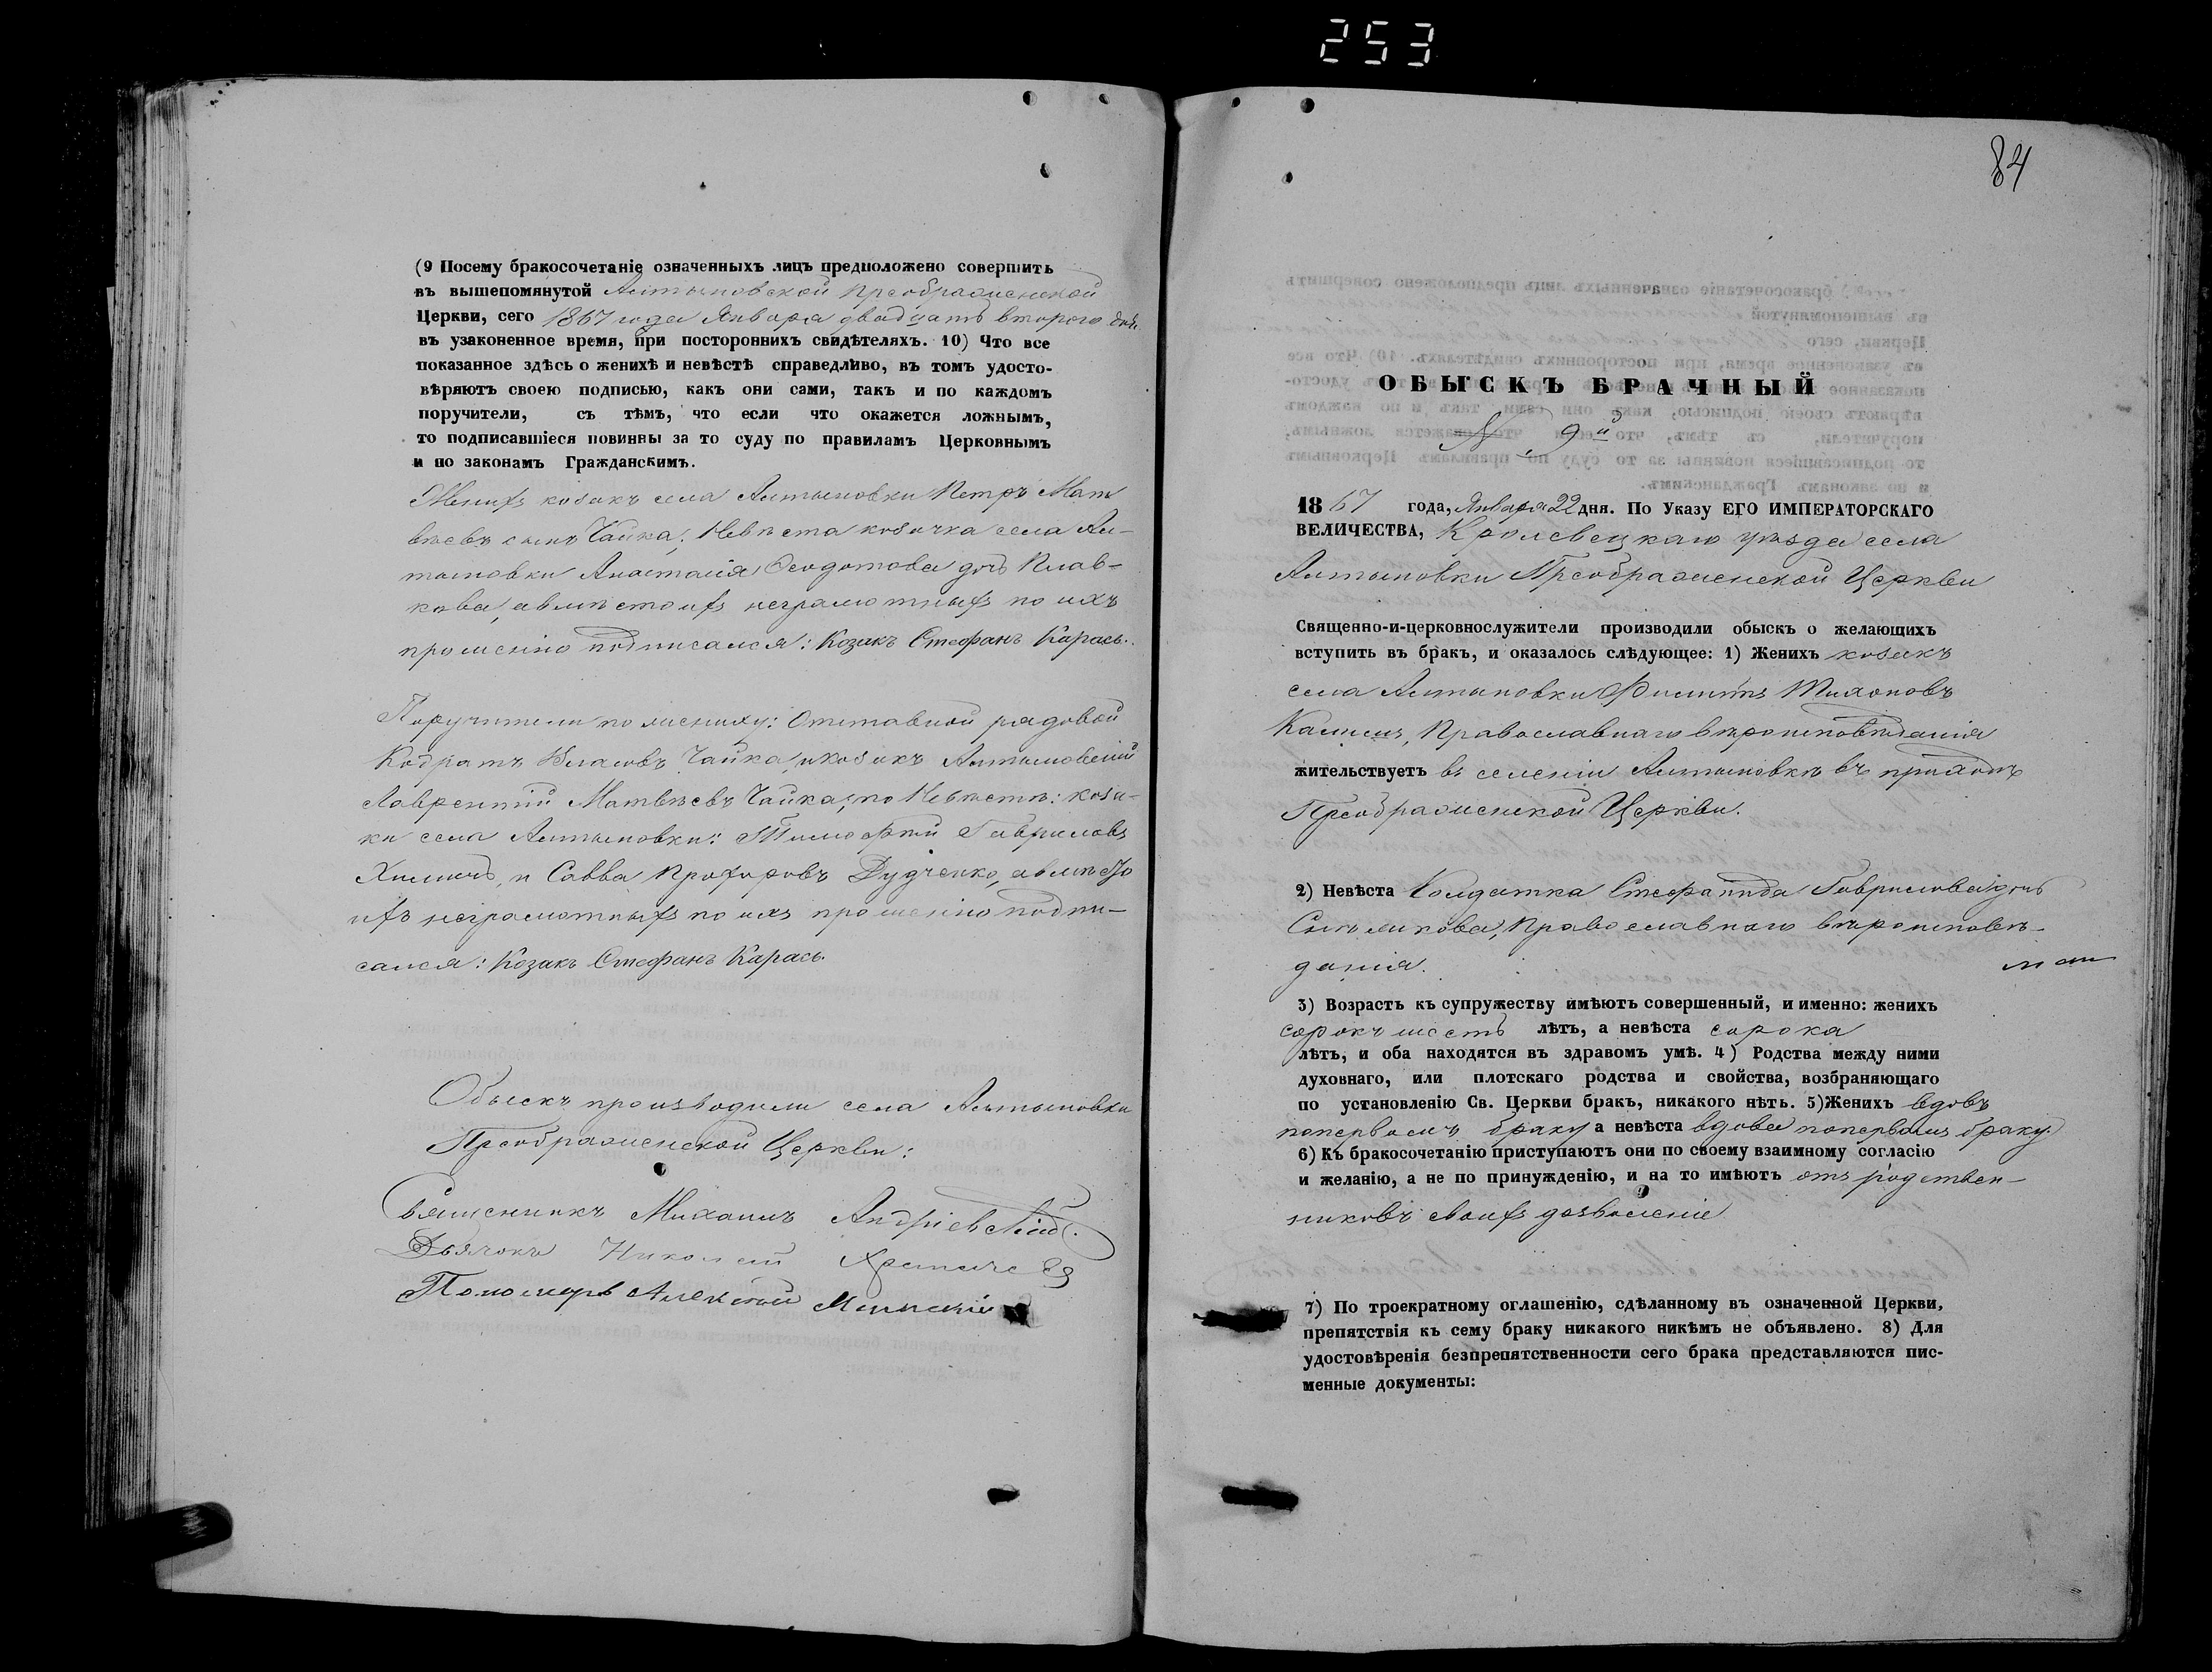 253
(9 Посему бракосочетаніе означенныхъ лицъ предположено совершить
въ вышепомянутой Алтыновской Преображенской
Церкви, сего 1867 года Января двадцать второго дня
въ узаконенное время, при постороннихъ свидѣтеляхъ. 10) Что все
показанное здѣсь о женихѣ и невѣстѣ справедливо, въ томъ удосто-
вѣряютъ своею подписью, какъ они сами, такъ и по каждомъ
поручители, съ тѣмъ, что если что окажется ложнымъ,
то подписавшіеся повинны за то суду по правиламъ Церковнымъ
и по законамъ Гражданскимъ.
Женихъ козакъ села Алтыновки Петръ Мат
вѣевъ сынъ Чайка; Невѣста козачка села Ал-
тыновки Анастасія Феодотова дочь Плав-
кова, авмѣсто ихъ неграмотныхъ по ихъ
прошенію подписался: Козакъ Стефанъ Карась.
Поручители по жениху: Отставной рядовой
Кодратъ Власовъ Чайка, и козакъ Алтыновскій
Лаврентій Матвѣевъ Чайка; по Невѣстѣ: коза-
ки села Алтыновки: Тимофѣй Гавриловъ
и Савва Прохоровъ Дудченко, авмѣсто
ихъ неграмотныхъ по ихъ прошенію подпи-
сался: Козакъ Стефанъ Карась.
Обыскъ производили села Алтыновки
Преображенской Церкви:
Священникъ Михаилъ Андріевскій.
Дьячокъ Николай
Пономарь Алексѣй
84
ОБЫСКЪ БРАЧНЫЙ
N 9й
1867 года, Января 22 дня. По Указу ЕГО ИМПЕРАТОРСКАГО
ВЕЛИЧЕСТВА, Кролевецкаго уѣзда села
Алтыновки Преображенской Церкви
Священно-и-церковнослужители производили обыскъ о желающихъ
вступить въ бракъ, и оказалось слѣдующее: 1) Женихъ козакъ
села Алтыновки Филиппъ Тихоновъ
Православнаго вѣроисповѣданія
жительствуетъ въ селеніи Алтыновкѣ въ приходѣ
Преображенской Церкви.
2) Невѣста Солдатка Стефанида Гаврилова дочь
Православнаго вѣроисповѣ-
данія.
3) Возрасть къ супружеству имѣютъ совершенный, и именно: женихъ
сорокъ шесть лѣтъ, а невѣста сорока
лѣтъ, и оба находятся въ здравомъ умѣ. 4) Родства между ними
духовнаго, или плотскаго родства и свойства, возбраняющаго
по установленію Св. Церкви бракъ, никакого нѣть. 5) Женихъ вдовъ
поперьвомъ браку а невѣста вдова поперьвомъ браку.
6) Къ бракосочетанію приступаютъ они по своему взаимному согласію
и желанію, а не по принужденію, и на то имѣютъ отъ родствен-
никовъ своихъ дозволеніе
7) По троекратному оглашенію, сдѣланному въ означенной Церкви,
препятствія къ сему браку никакого никѣмъ не объявлено. 8) Для
удостовѣренія безпрепятственности сего брака представляются пис-
менные документы: